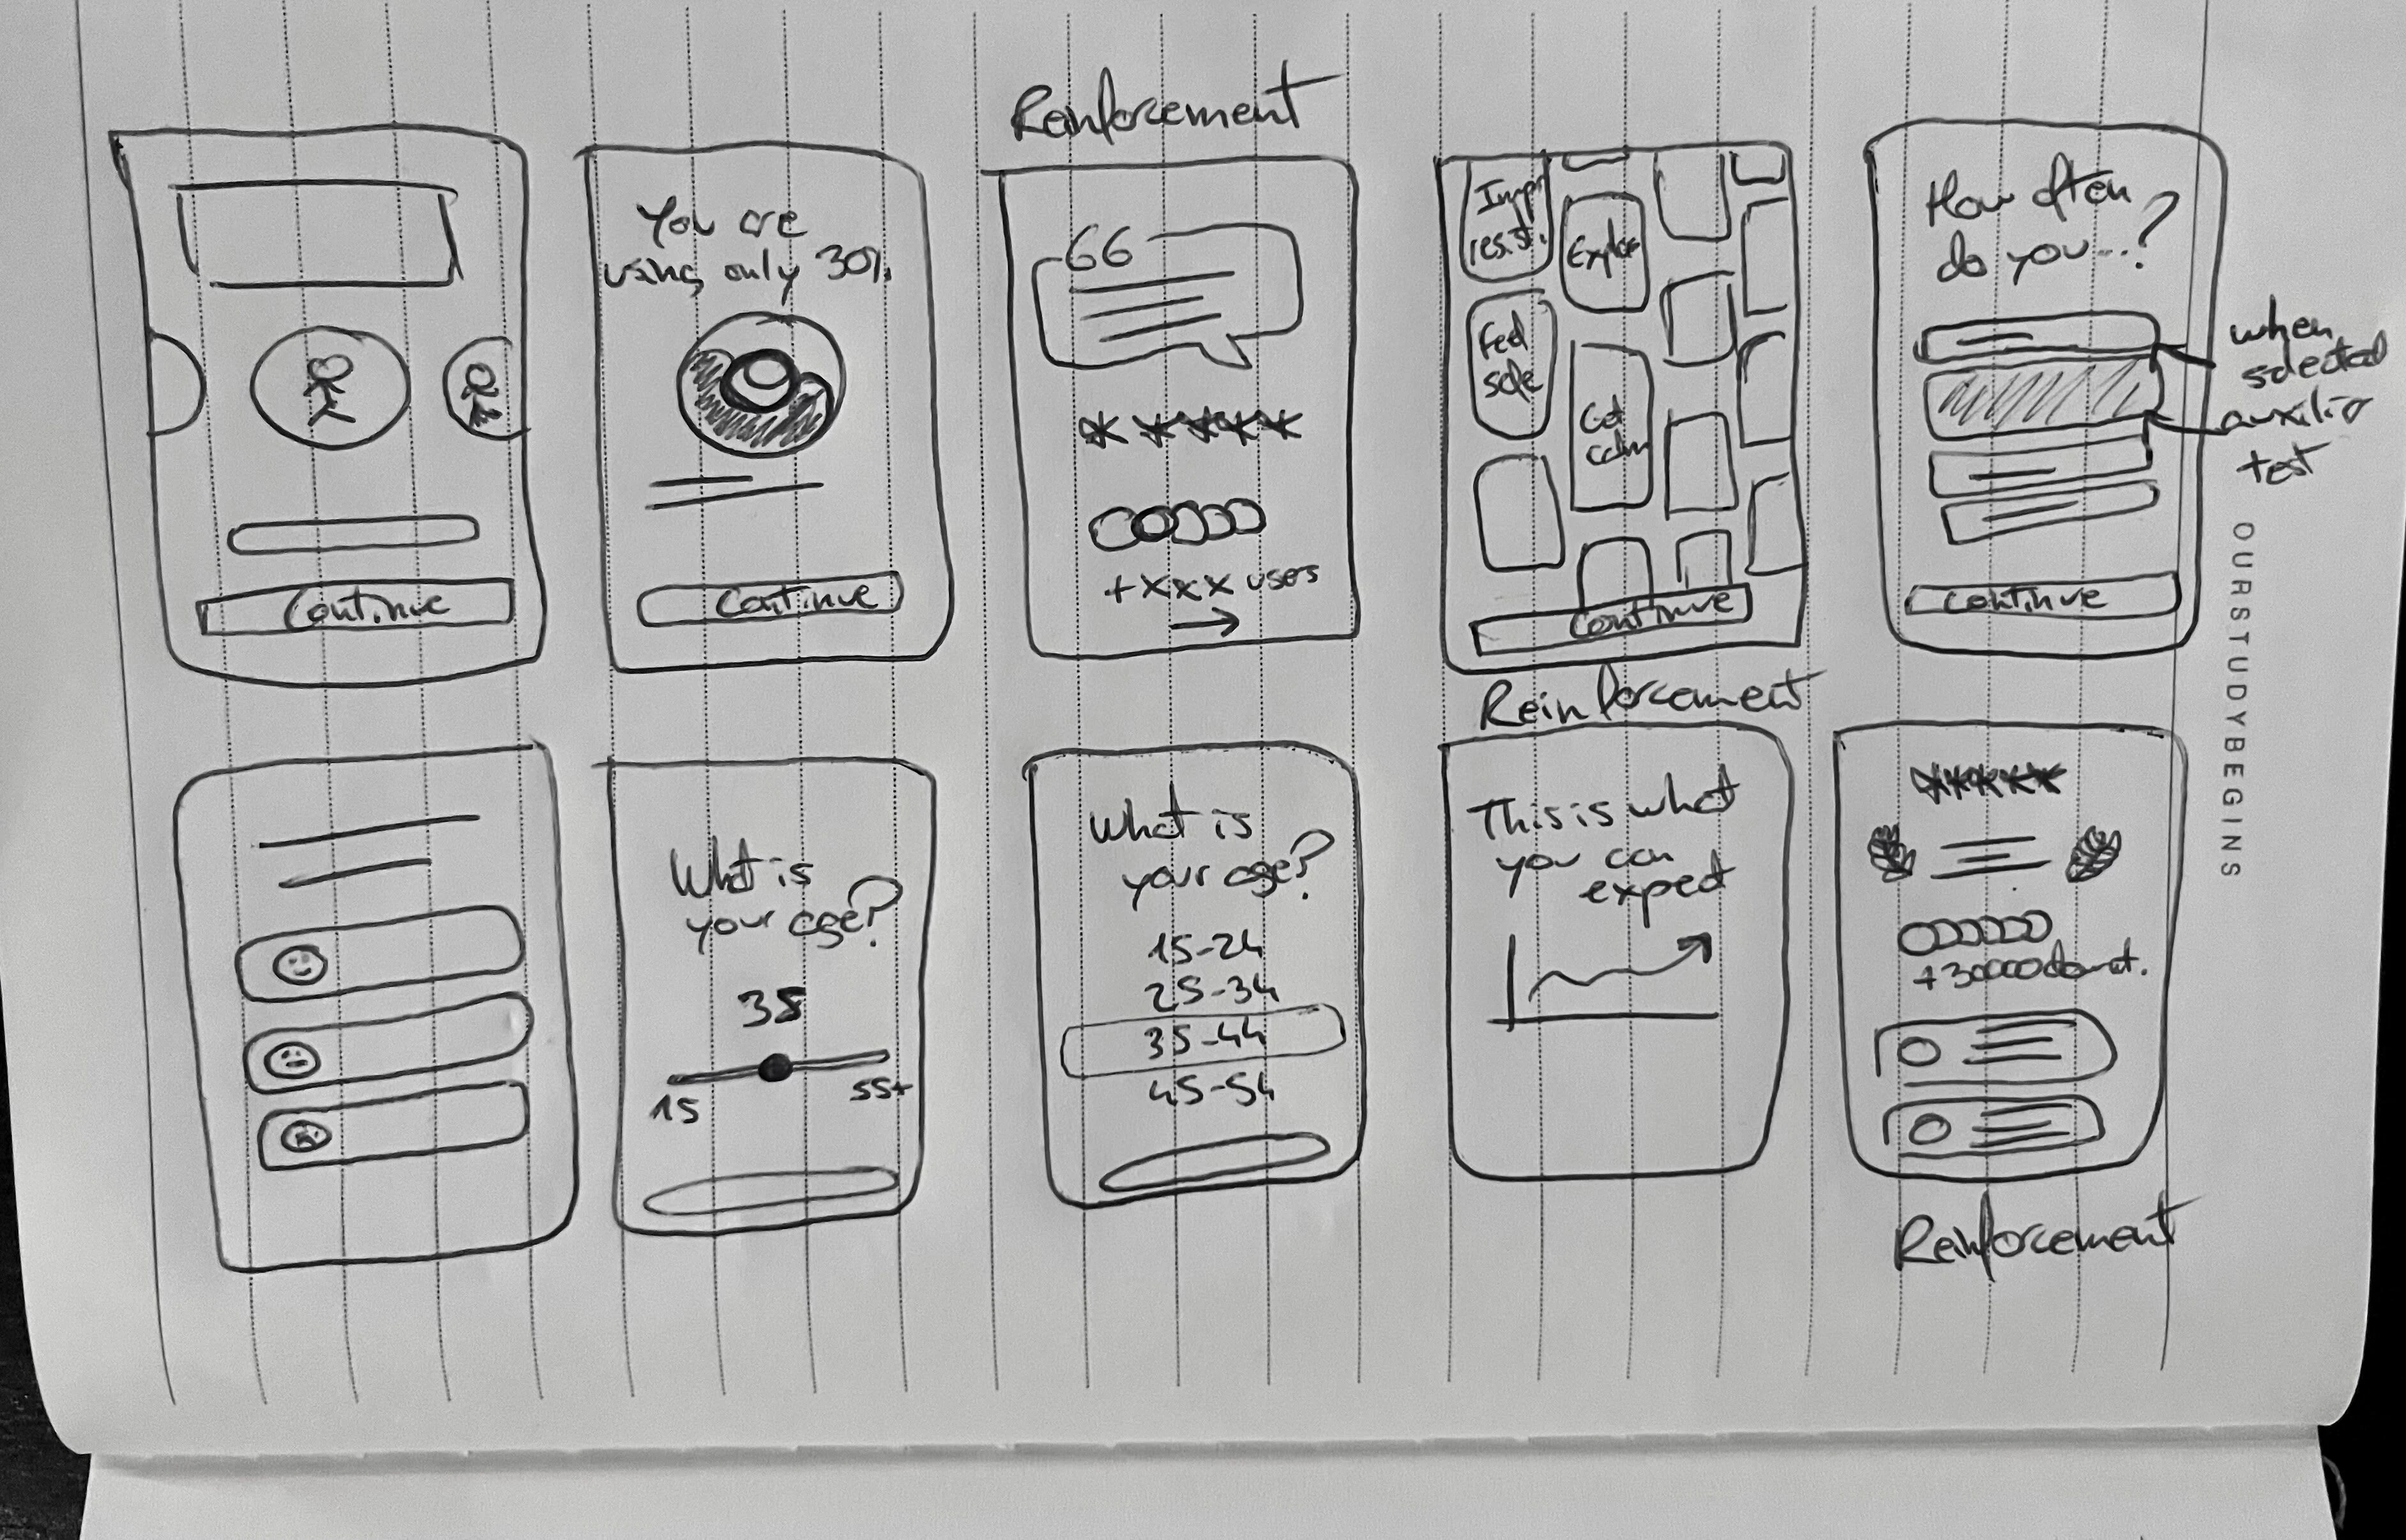 Reinforcement
Continue
You are
using only 30%
Continue
66
+xxx users
Impr
resist.
Explor
Feel
safe
Get
calm
Continue
How often
do you...?
Continue
when
selected
auxiliar
text
OURSTUDYBEGINS
What is
your age?
38
15
55+
What is
your age?
15-24
25-34
35-44
45-54
Reinforcement
This is what
you can
expect
+30000
Reinforcement